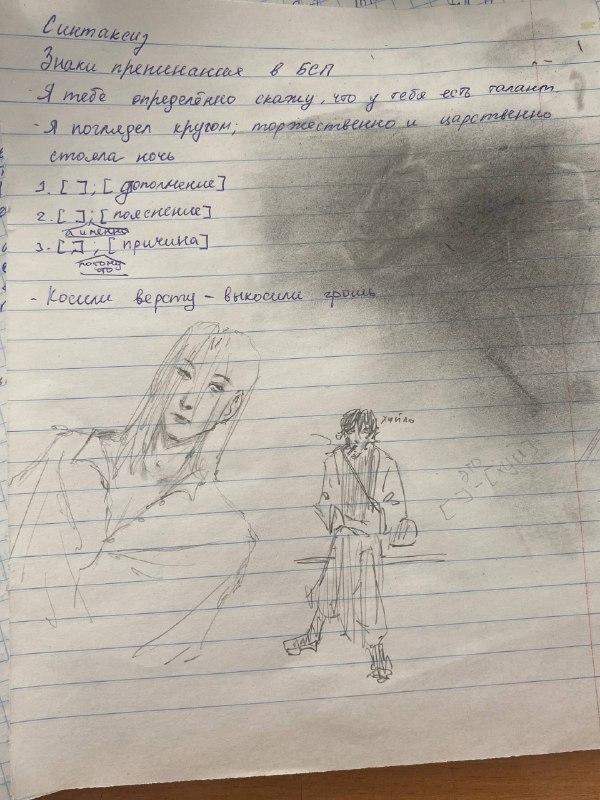 Синтаксиз
Знаки препинания в БСП
- Я тебе определённо скажу, что у тебя есть талант.
- Я поглядел кругом; торжественно и царственно
стояла ночь
1. [ ] ; [ дополнение]
2. [ ] ; [пояснение]
а именно
3. [ ] ; [причина]
потому что
- Косили версту – выкосили грош
хуйло
это
[ ] - [